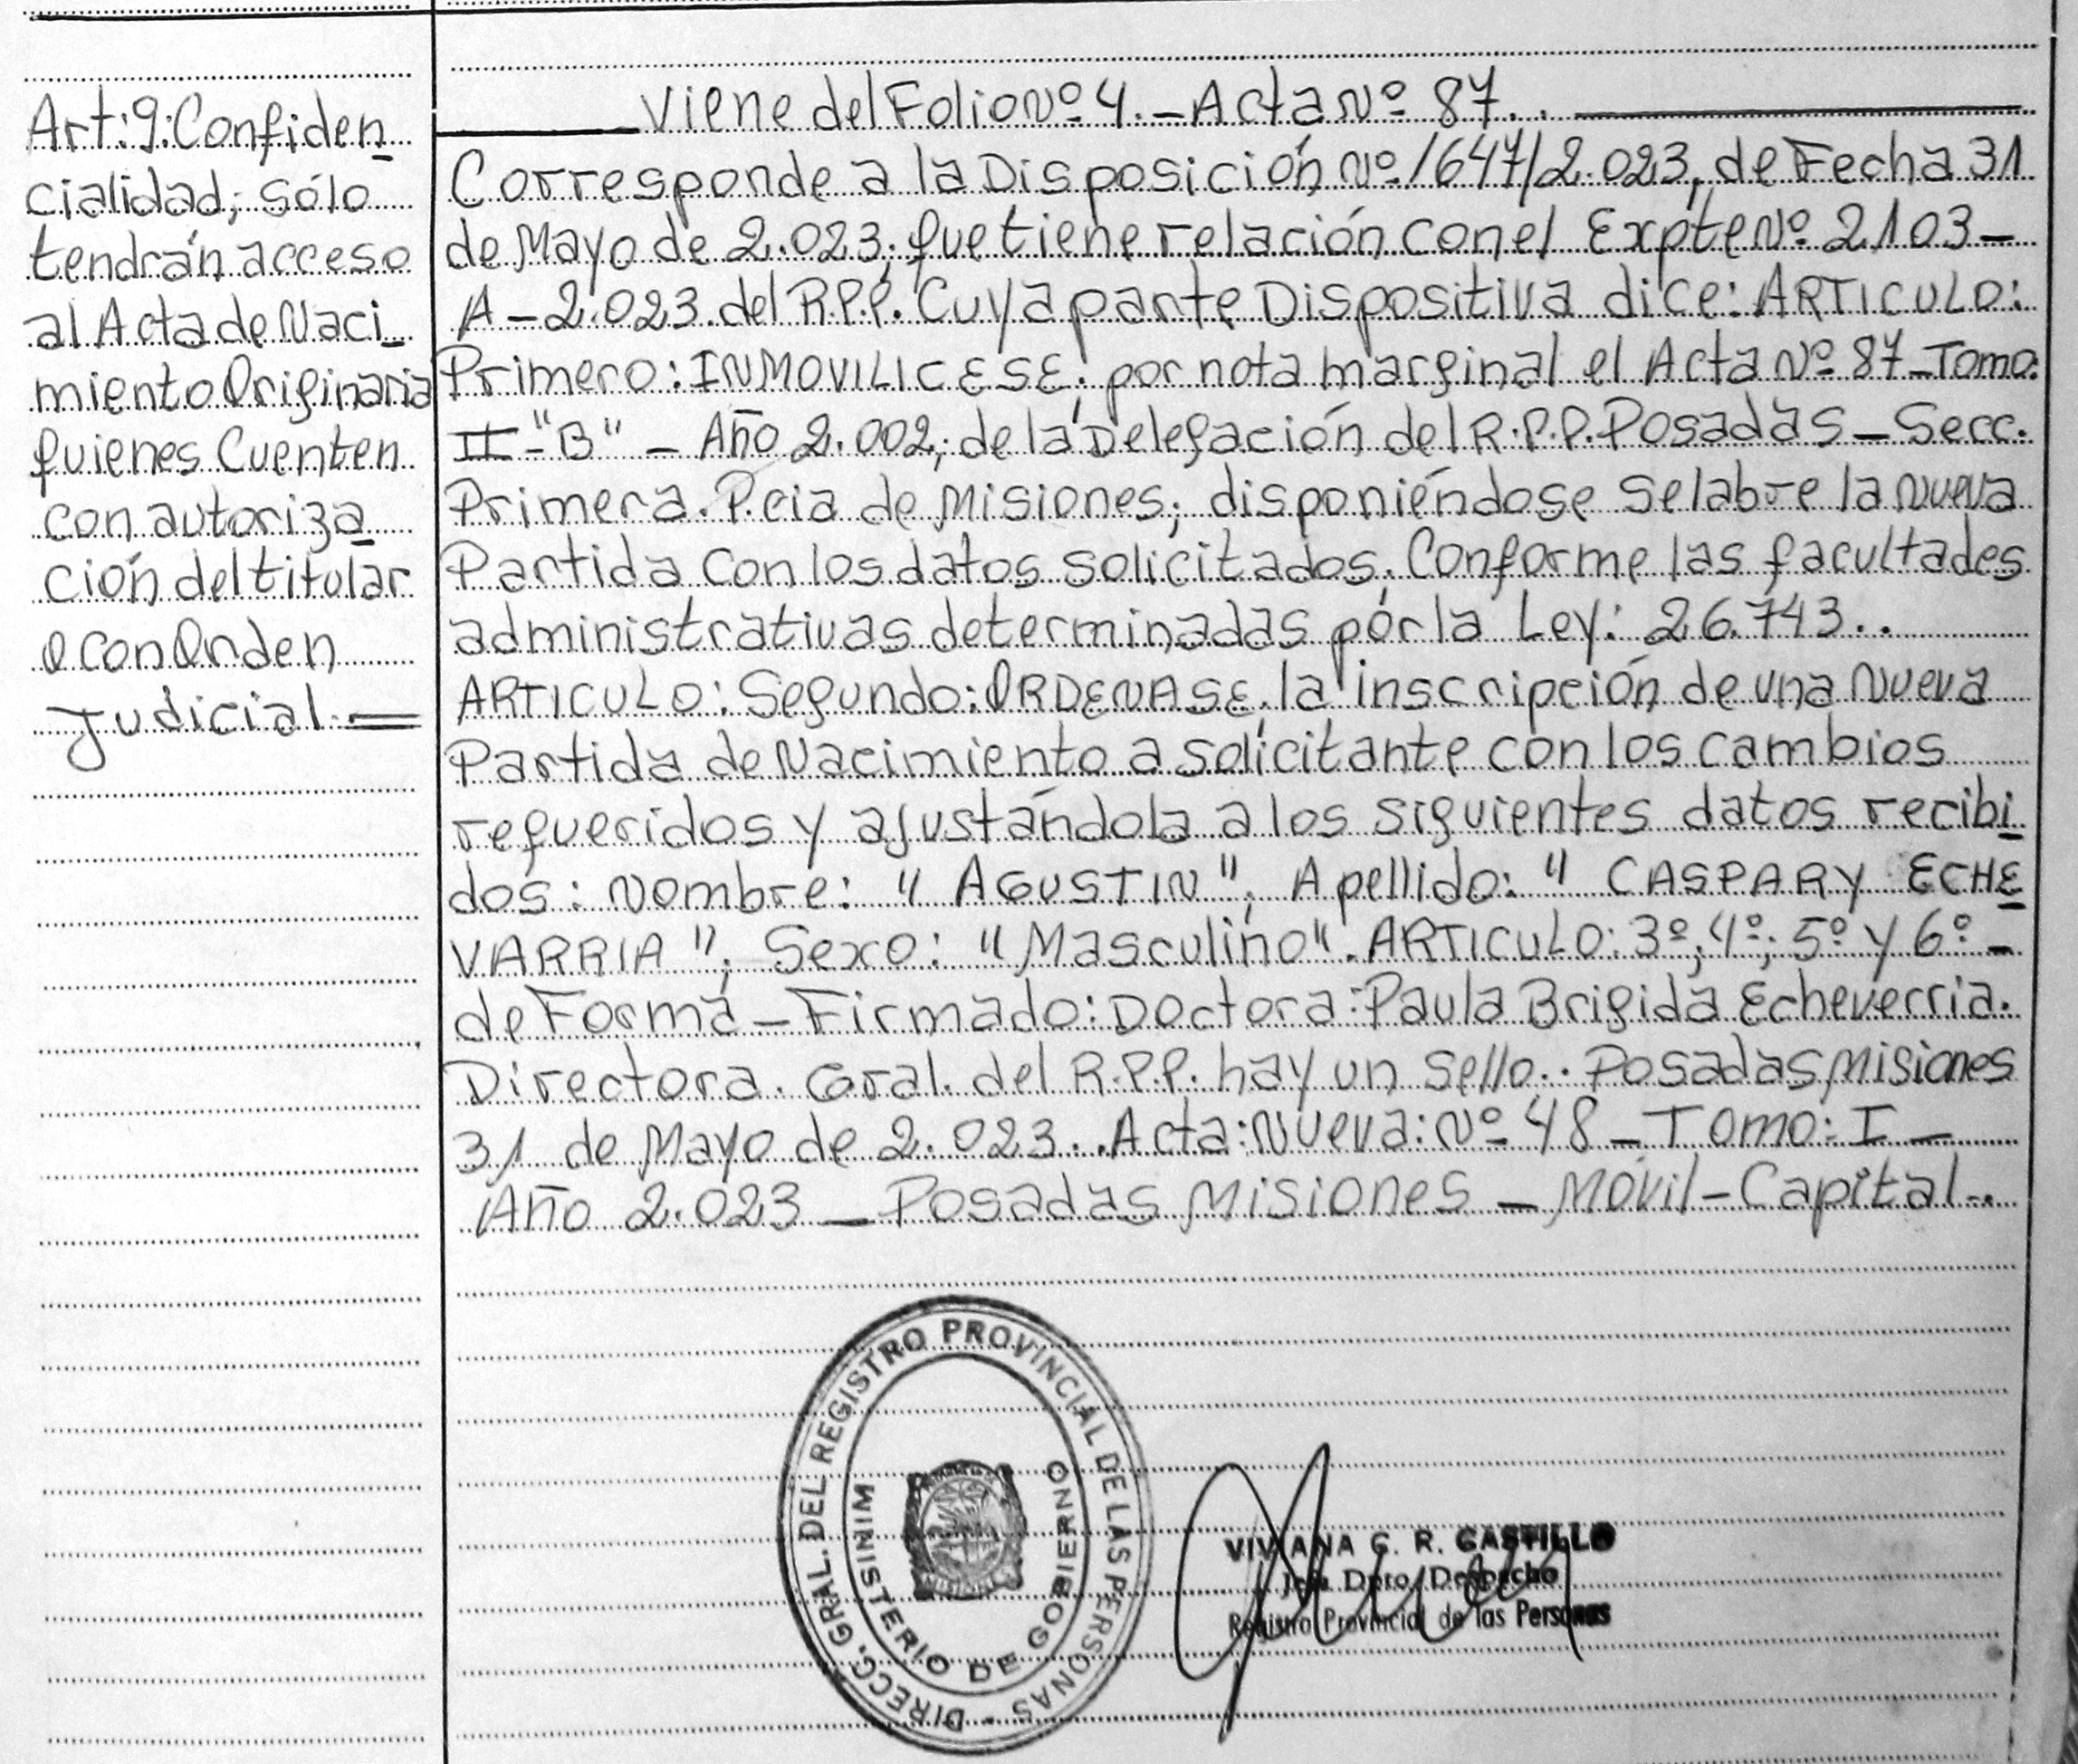 Art:9:Confiden
cialidad; sólo
tendrán acceso
al Acta de Naci
miento Originaria
quienes Cuenten
con autoriza
ción del titular
o con Orden
Judicial.
Viene del Folio Nº 4.-Acta Nº 87..
Corresponde a la Disposición Nº 1647/2.023, de Fecha 31
de Mayo de 2.023; que tiene relación con el Expte Nº 2103-
A-2.023.del R.P.P. Cuya parte Dispositiva dice: ARTICULO:
Primero: INMOVILICESE; por nota marginal el Acta Nº 87-Tomo:
II-"B" - Año 2.002; de la Delegación del R.P.P. Posadas - Secc.
Primera. Pcia de Misiones; disponiéndose se labre la nueva
Partida con los datos solicitados, Conforme las facultades
administrativas determinadas por la Ley: 26.743..
ARTICULO: Segundo: ORDENASE, la inscripción de una nueva
Partida de Nacimiento a solicitante con los cambios
requeridos y ajustándola a los siguientes datos recibi
dos: Nombre: "AGUSTIN"; Apellido: "CASPARY ECHE
VARRIA"; Sexo: "Masculino". ARTICULO: 3º; 4º; 5º y 6º-
de Forma - Firmado: Doctora: Paula Brigida Echeverria.
Directora. Gral. del R.P.P. hay un sello.. Posadas Misiones
31 de Mayo de 2.023.. Acta: Nueva: Nº 48 - Tomo: I -
Año 2.023 - Posadas Misiones - Móvil - Capital-.
DIRECC. GRAL. DEL REGISTRO PROVINCIAL DE LAS PERSONAS -
MINISTERIO DE GOBIERNO
MISIONES
VIVIANA G. R. CASTILLO
Jefa Dpto. Despacho
Registro Provincial de las Personas